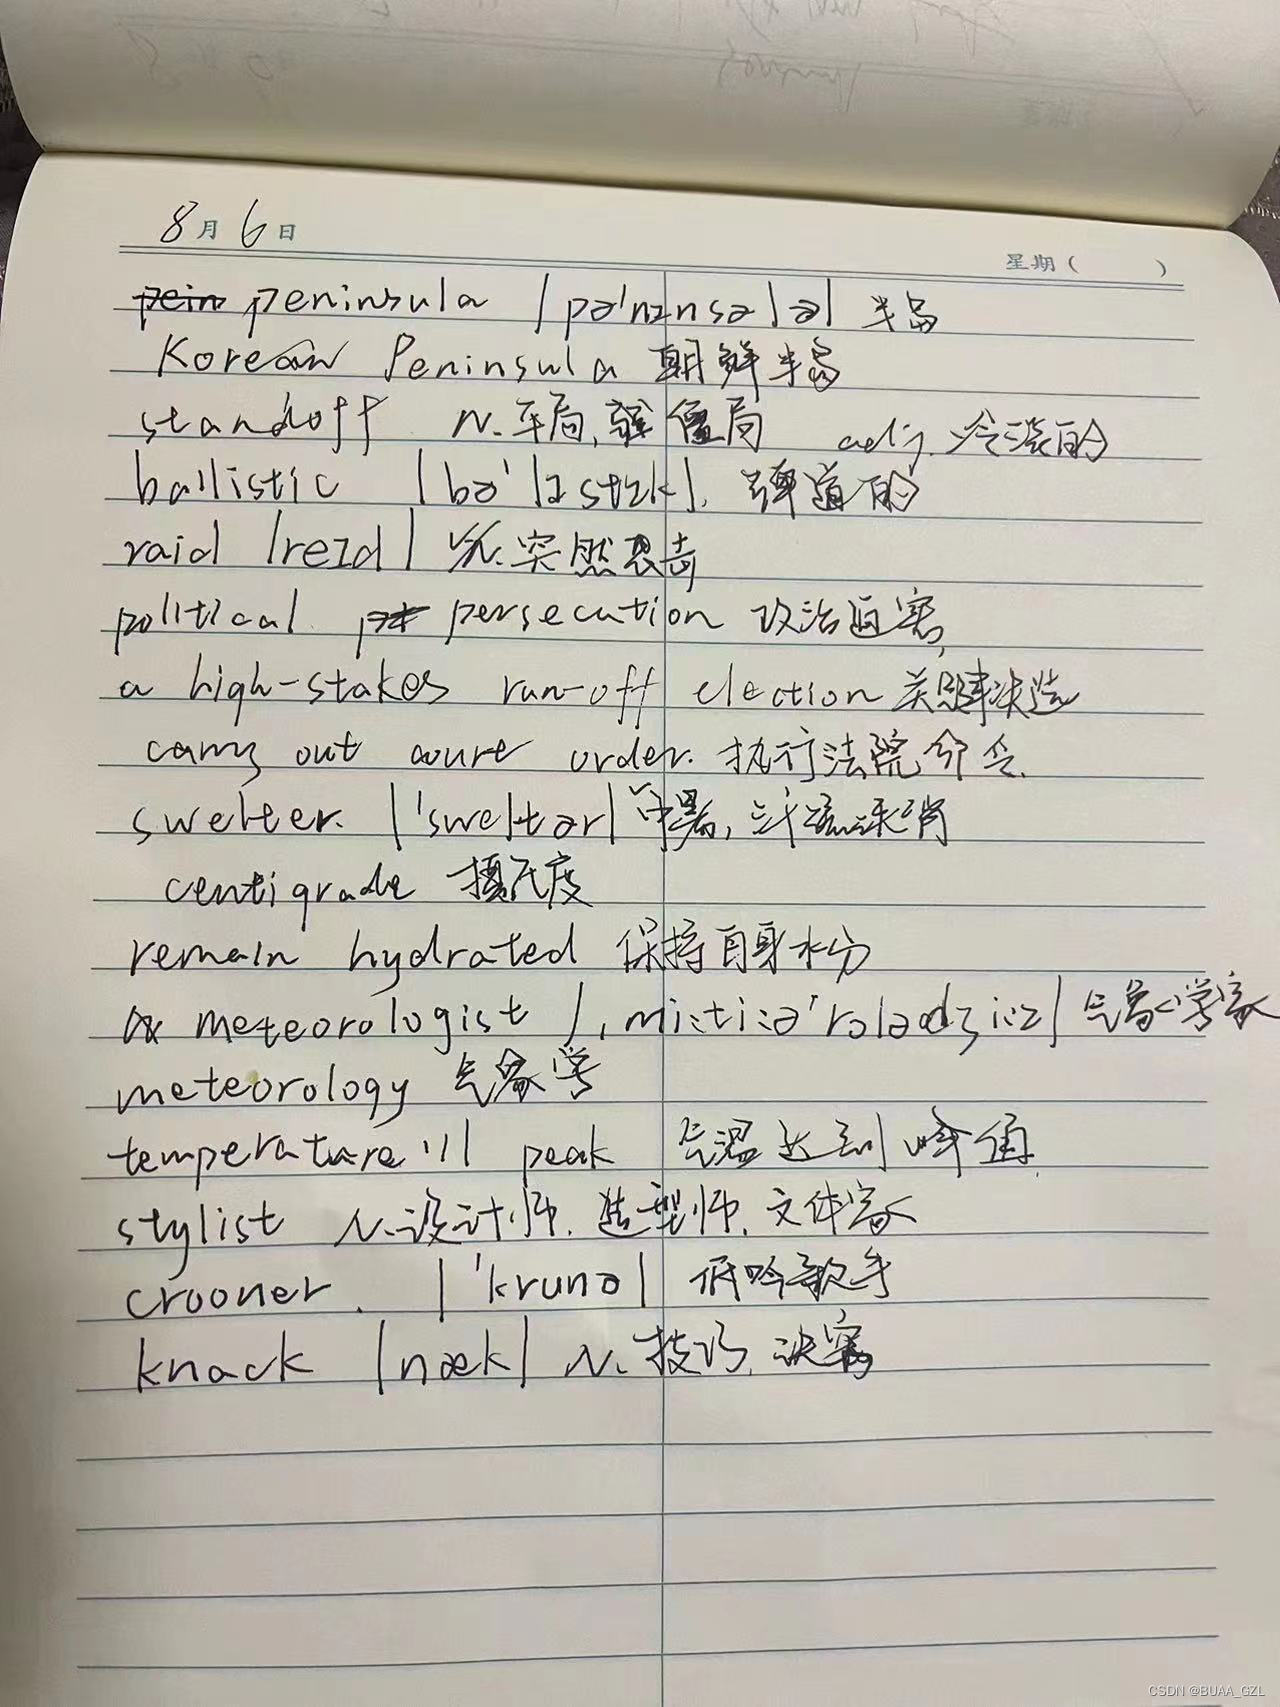 8月6日
星期( )
peninsula |pəˈnɪnsələ| 半岛
Korean Peninsula 朝鲜半岛
standoff n.平局, 僵局 adj. 冷淡的
ballistic |bəˈlɪstɪk|. 弹道的
raid |reɪd| n.突然
political persecution 政治迫害
a high-stakes run-off election 关键决选
carry out court order. 执行法院命令.
swelter. |ˈsweltər| 中暑, 汗流浃背
centigrade 摄氏度
remain hydrated 保持自身水分
meteorologist 气象学家
meteorology 气象学
temperature peak 气温达到峰值.
stylist n.设计师. 造型师. 文体家
crooner. |ˈkrunə| 低吟歌手
knack |næk| n. 技巧.
CSDN @BUAA_GZL